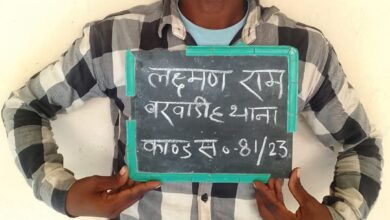 लक्ष्मण राम
बरवाडीह थाना
काण्ड सं०-81/23